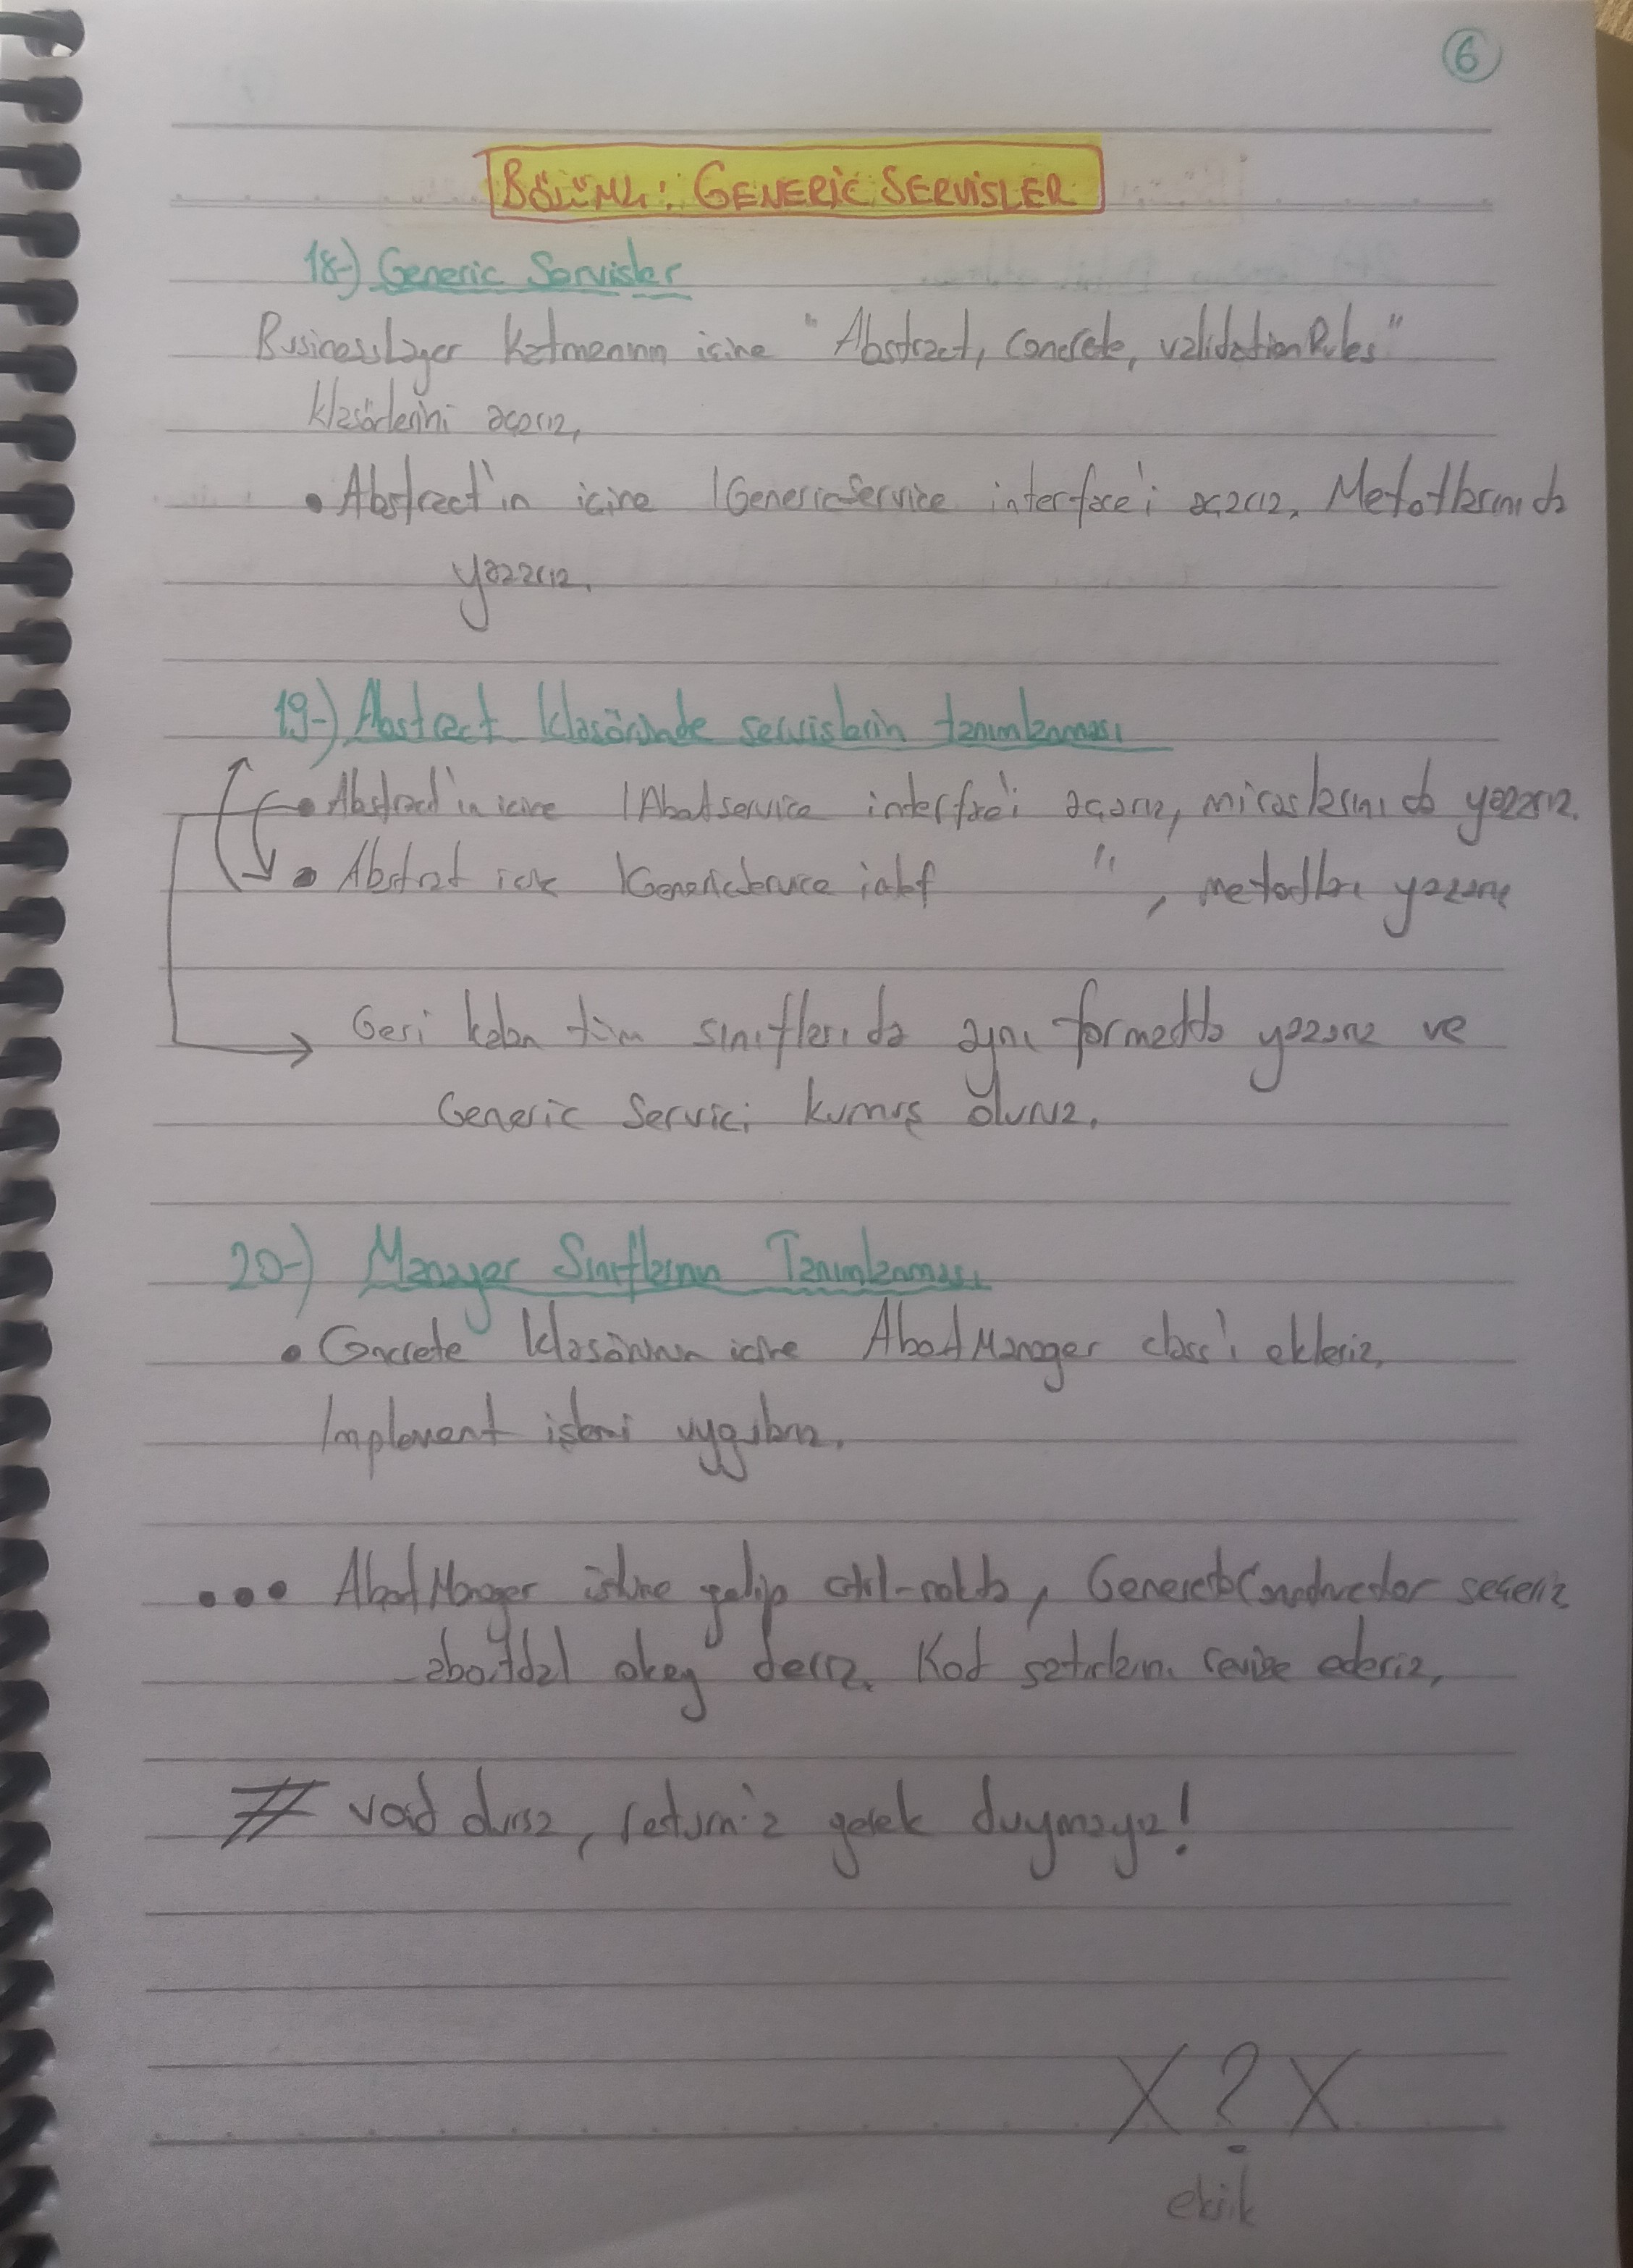 6
BÖLÜM4: GENERIC SERVİSLER
18-) Generic Servisler
BusinessLayer Katmanının içine "Abstract, concrete, validationRules"
klasörlerini açarız,
• Abstract'ın içine IGenericService interface'i açarız, Metotlarını da
yazarız.
19-) Abstract klasöründe servislerin tanımlanması
• Abstract'ın içine IAboutservice interface'i açarız, miraslarını da yazarız.
• Abstract içine IGenericService interf " , metodları yazarız
Geri kalan tüm sınıfları da aynı formatta yazarız ve
Generic Servici kurmuş oluruz.
20-) Manager Sınıflarının Tanımlanması
• Concrete klasörünün içine AboutManager class'ı ekleriz,
Implement işlemi uygularız.
••• AboutManager üstüne gelip ctrl-nokta, GenerateConstructor seçeriz
aboutdal okey deriz. Kod satırlarını revize ederiz,
# void dursa, return'a gerek duymayız!
X ? X
eksik